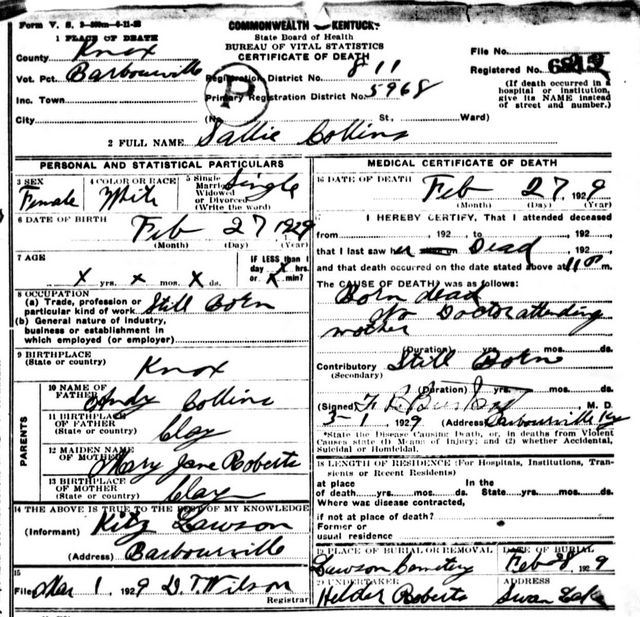 Form V. S.
COMMONWEALTH OF KENTUCKY
State Board of Health
BUREAU OF VITAL STATISTICS
CERTIFICATE OF DEATH
1 PLACE OF DEATH
County Knox
Vot. Pct. Barbourville
Inc. Town
City
Registration District No. 811
Primary Registration District No. 5968
(No. St., Ward)
File No.
Registered No.
(If death occurred in a
hospital or institution,
give its NAME instead
of street and number.)
R
2 FULL NAME Sallie Collins
PERSONAL AND STATISTICAL PARTICULARS
3 SEX
Female
4 COLOR OR RACE
White
5 Single
Married
Widowed
or Divorced
(Write the word)
Single
6 DATE OF BIRTH
Feb 27 1929
(Month) (Day) (Year)
7 AGE
X yrs. X mos. X ds.
IF LESS than 1
day X hrs.
or X min?
8 OCCUPATION
(a) Trade, profession or
particular kind of work Still Born
(b) General nature of industry,
business or establishment in
which employed (or employer)
9 BIRTHPLACE
(State or country)
Knox
PARENTS
10 NAME OF
FATHER
Andy Collins
11 BIRTHPLACE
OF FATHER
(State or country)
Clay
12 MAIDEN NAME
OF MOTHER
Mary Jane Roberts
13 BIRTHPLACE
OF MOTHER
(State or country)
Clay
14 THE ABOVE IS TRUE TO THE BEST OF MY KNOWLEDGE
(Informant) Kitz Lawson
(Address) Barbourville
15
Filed Mar 1 1929 D. T. Wilson
Registrar
MEDICAL CERTIFICATE OF DEATH
16 DATE OF DEATH
Feb 27, 1929
(Month) (Day) (Year)
I HEREBY CERTIFY, That I attended deceased
from , 192 , to , 192 ,
that I last saw her Dead , 192 ,
and that death occurred on the date stated above at
The CAUSE OF DEATH was as follows:
Born dead
No Doctor attending
mother
(Duration) yrs. mos. ds.
Contributory Still Borne
(Secondary)
(Duration) yrs. mos. ds.
(Signed) M. D.
3-1 1929 (Address) Barbourville Ky
*State the Disease Causing Death, or, in deaths from Violent
Causes state (1) Means of Injury; and (2) whether Accidental,
Suicidal or Homicidal.
18 LENGTH OF RESIDENCE (For Hospitals, Institutions, Transients or Recent Residents)
at place In the
of death yrs. mos. ds. State yrs. mos. ds.
Where was disease contracted,
if not at place of death?
Former or
usual residence
19 PLACE OF BURIAL OR REMOVAL
Lawson Cemetery
DATE OF BURIAL
Feb 28 1929
20 UNDERTAKER
Helder Roberts
ADDRESS
Swan Lake